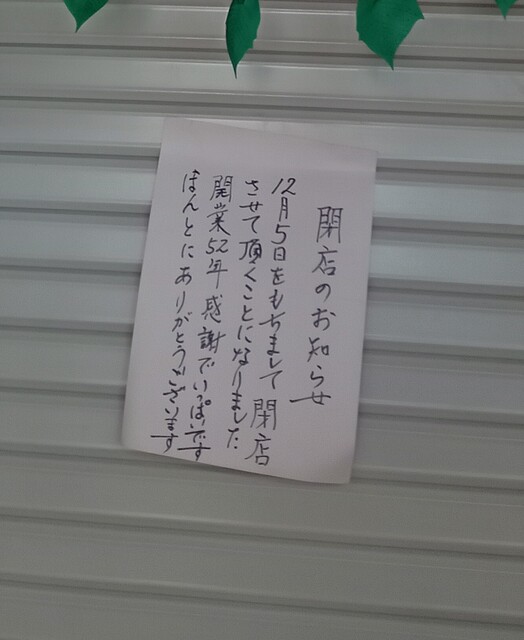 閉店のお知らせ
12月5日をもちまして閉店
させて頂くことになりました
開業52年感謝でいっぱいです
ほんとにありがとうございます